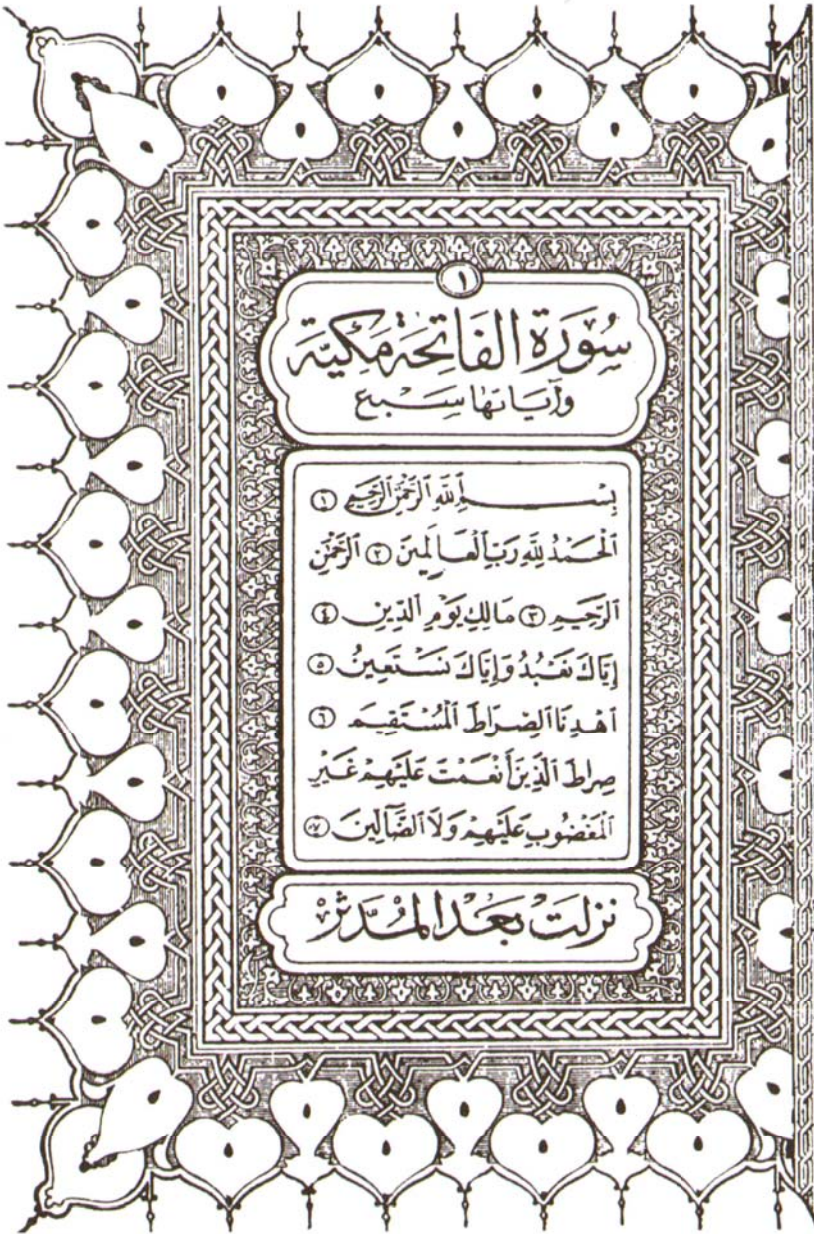 ١
سُورَة الفَاتِحَة مَكِّيَّة
وَآيَاتهَا سَبْع
بِسْمِ ٱللَّهِ ٱلرَّحْمَٰنِ ٱلرَّحِيمِ ١
ٱلْحَمْدُ لِلَّهِ رَبِّ ٱلْعَالَمِينَ ٢ ٱلرَّحْمَٰنِ
ٱلرَّحِيمِ ٣ مَالِكِ يَوْمِ ٱلدِّينِ ٤
إِيَّاكَ نَعْبُدُ وَإِيَّاكَ نَسْتَعِينُ ٥
ٱهْدِنَا ٱلصِّرَاطَ ٱلْمُسْتَقِيمَ ٦
صِرَاطَ ٱلَّذِينَ أَنْعَمْتَ عَلَيْهِمْ غَيْرِ
ٱلْمَغْضُوبِ عَلَيْهِمْ وَلَا ٱلضَّآلِّينَ ٧
نزلَتْ بَعْدَ المُدَّثِّرْ